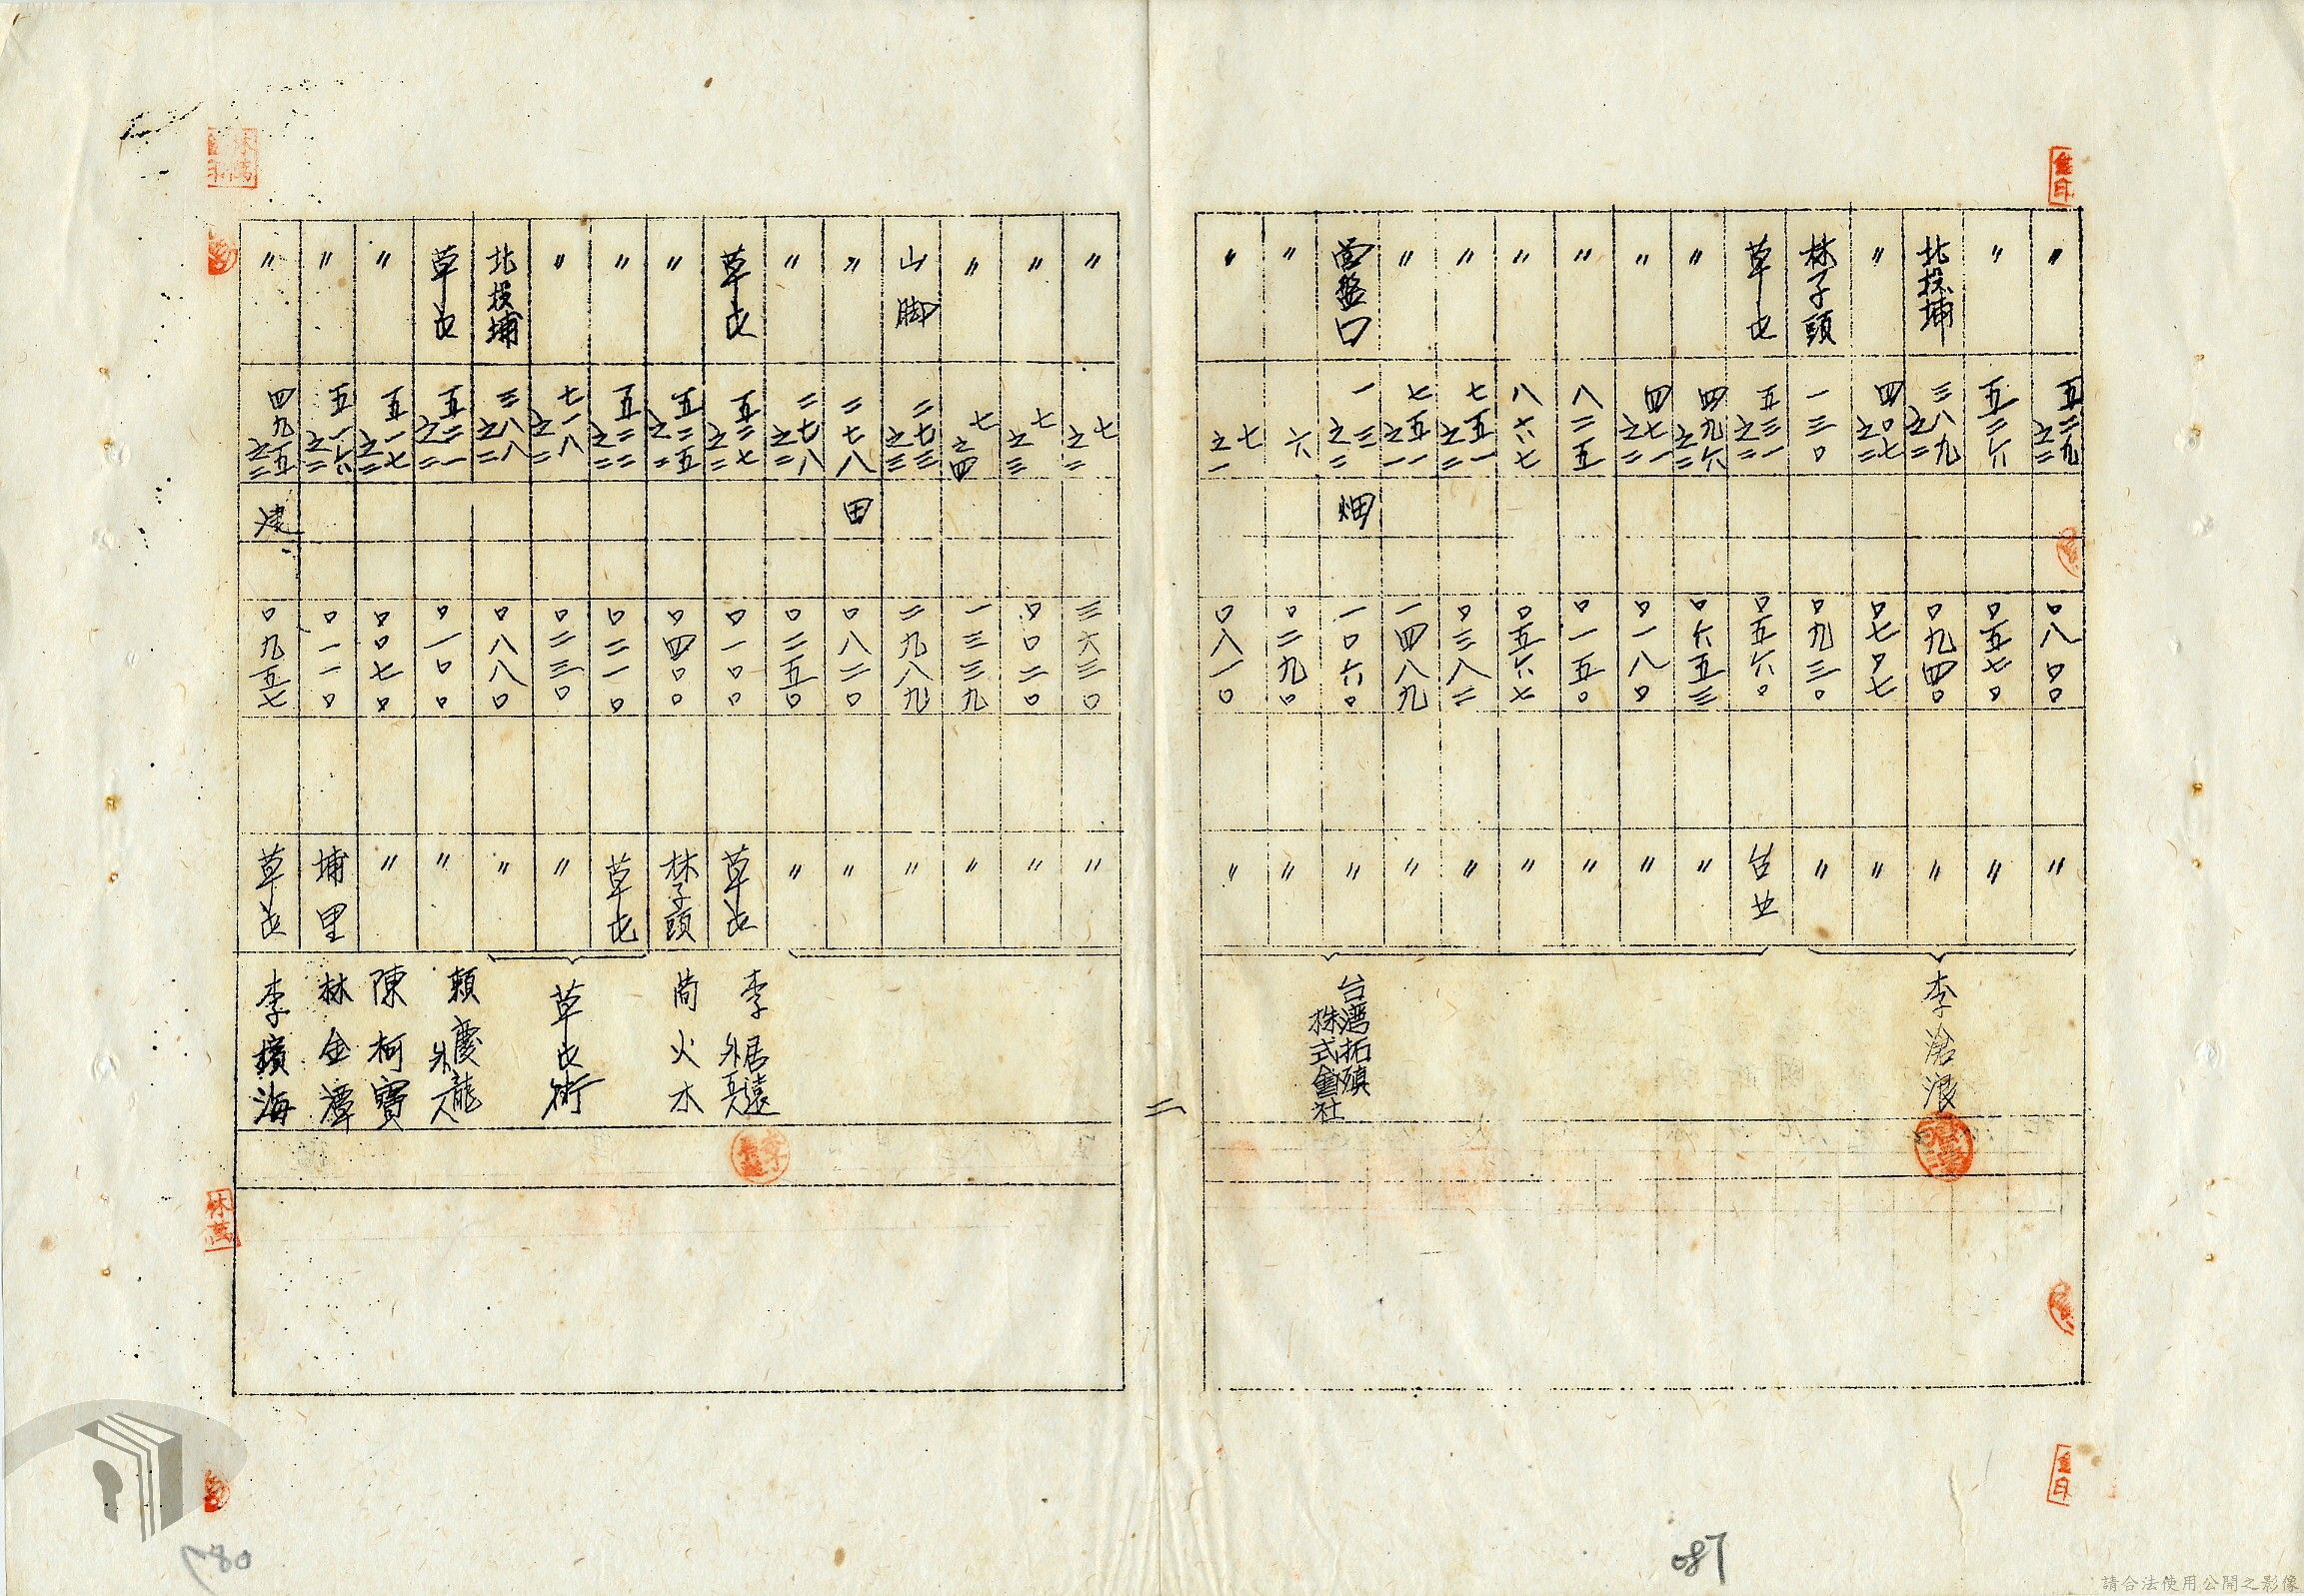 〃 五二九之二 〇八〇〇 〃
〃 五二六 〇五七〇 〃
北投埔 三八九之二 〇九四〇 〃
〃 四〇七之二 〇七〇七 〃
林子頭 一三〇 〇九三〇 〃
李滄浪
草屯 五三一之二 〇五六〇 台北
〃 四九六之二 〇六五三 〃
〃 四七一之二 〇一八〇 〃
〃 八二五 〇一五〇 〃
〃 八六七 〇五六七 〃
〃 七五一之二 〇三八二 〃
〃 七五一之一 一四八九 〃
営盤口 一三之二 畑 一〇六〇 〃
〃 六 〇二九〇 〃
〃 七之一 〇八一〇 〃
台湾拓殖
株式會社
二
〃 七之二 三六三〇 〃
〃 七之三 〇〇二〇 〃
〃 七之四 一三三九 〃
山脚 二七三之三 二九八九 〃
〃 二七八 田 〇八二〇 〃
〃 二七八之二 〇二五〇 〃
草屯 五二七之二 〇一〇〇 草屯 李居遠
外五人
〃 五二五之二 〇四〇〇 林子頭 簡火木
〃 五二二之二 〇二一〇 草屯
〃 七一八之二 〇二三〇 〃
北投埔 三八八之二 〇八八〇 〃
草屯街
草屯 五二一之二 〇一〇〇 〃 賴慶龍
外人
〃 五一七之二 〇〇七〇 〃 陳柯寶
〃 五一六之二 〇一一〇 埔里 林金潭
〃 四九五之二 建 〇九五七 草屯 李擴海
087
請合法使用公開之影像